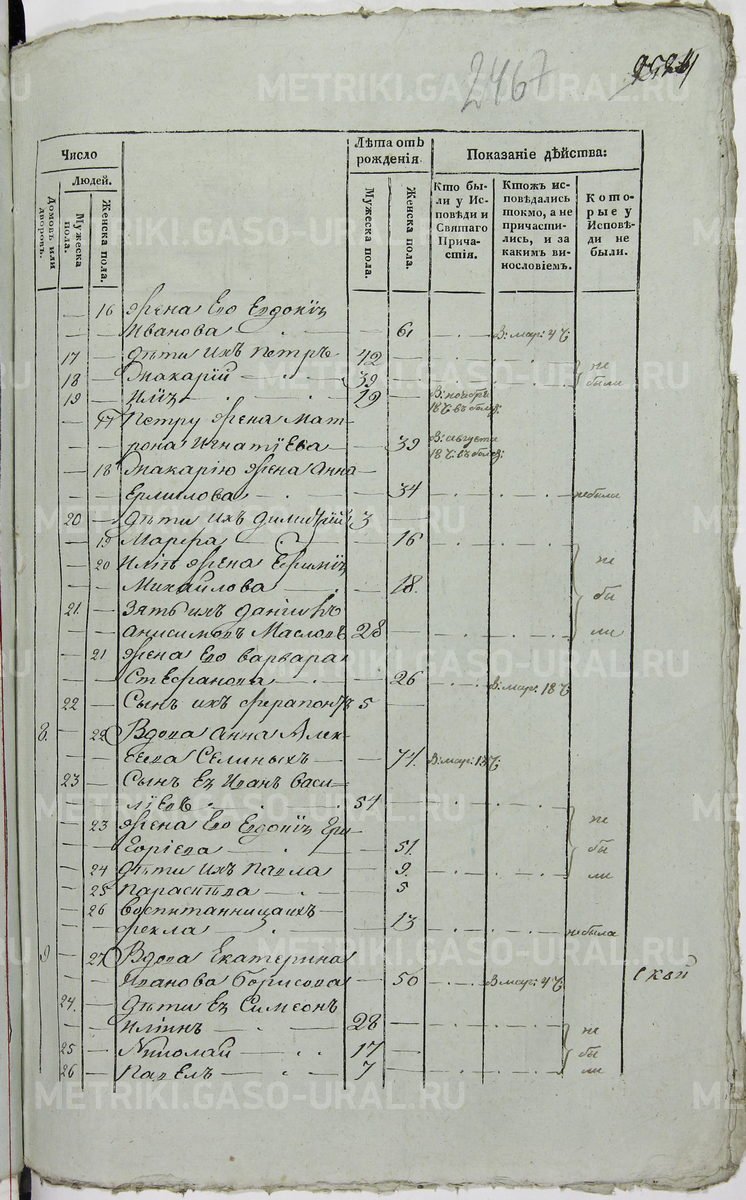 2467
Число
Людей.
Домовъ или дворовъ.
Мужеска пола.
Женска пола.
Лѣта отъ рожденія
Мужеска пола.
Женска пола.
Показаніе дѣйства:
Кто были у Исповѣди и Святаго Причастія.
Ктожъ исповѣдались токмо, а не причастились, и за какимъ винословіемъ.
Которые у Исповѣди не были.
16 жена Его Евдокія
Иванова 61 В: мар: 4 ч
17 дѣти ихъ Петръ 42
18 Макарій 39 не были
19 Илія 19
17 Петру жена Мат-
рона Игнатіева 39
18 Макарію жена Анна
Ермилова 34 не была
20 дѣти ихъ Димитрій 3
19 Марфа 16
20 Иліѣ жена Ефимія
Михайлова 18 не
21 Зять ихъ Даніилъ бы
Анисимовъ Масловъ 28 ли
21 жена Его Варвара
Стефанова 26 В: мар: 18 ч
22 Сынъ ихъ Ферапонтъ 5
8. 22 Вдова Анна Алек-
сеева Селиныхъ 74. В: мар: 13 ч
23 Сынъ Ея Иванъ Васи-
ліевъ 54
23 жена Его Евдокія Гри-
горіева 51. не
24 дѣти ихъ Павла 9 бы
25 Параскева 5 ли
26 воспитанница ихъ
Фекла 13 не была
9 27 Вдова Екатерина
Иванова Борисова 50 В мар: 4 ч ской
24. дѣти Ея Симеонъ
Иліинъ 28 не
25 Николай 17 бы
26 Павелъ 7 ли
METRIKI.GASO-URAL.RU